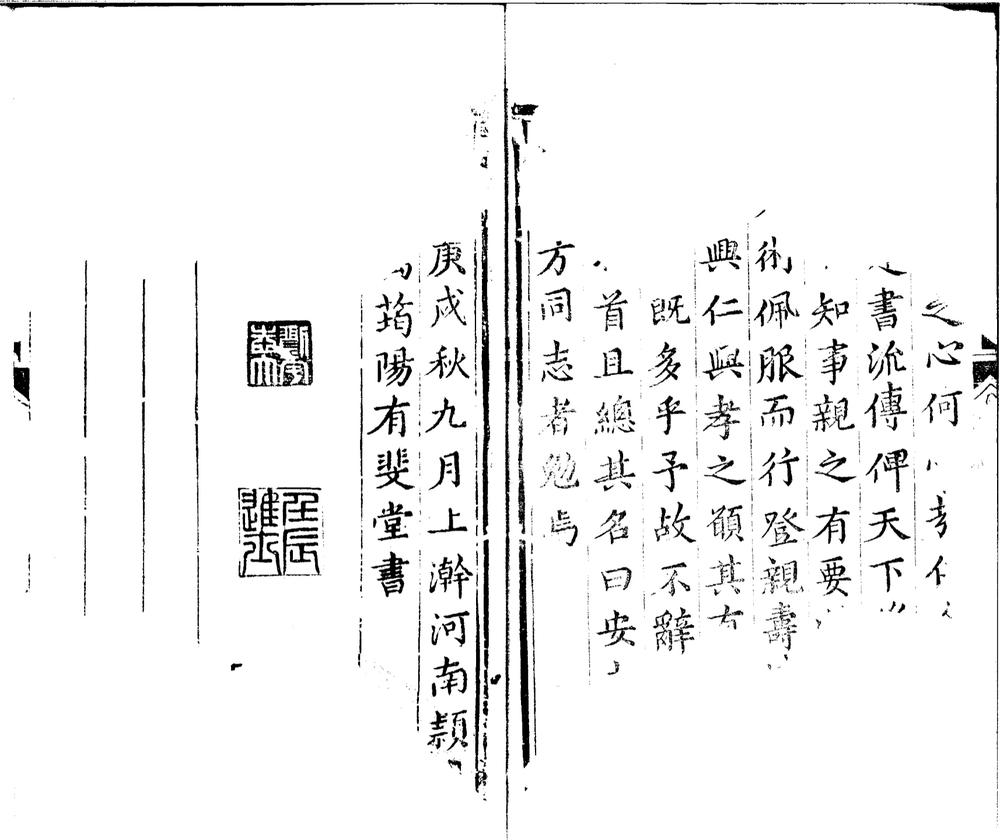 之心何
書流傳俾天下
知事親之有要
術佩服而行登親壽
興仁興孝之願其有
既多乎予故不辭
首且總其名曰安
方同志者勉焉
庚戌秋九月上澣河南潁
筠陽有斐堂書
壬辰進士